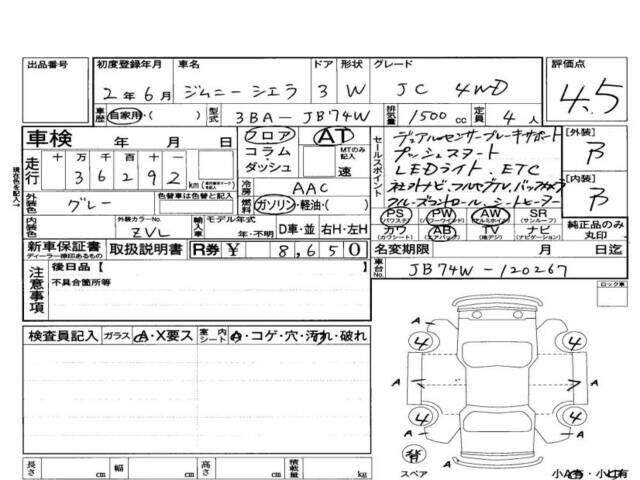 出品番号 初度登録年月 車名 ドア 形状 グレード 評価点
2年6月 ジムニーシエラ 3 W JC 4WD 4.5
車歴 自家用・( ) 型式 3BA-JB74W 排気量 1500cc 定員 4人
車検 年 月 日 フロア AT
コラム・ダッシュ MTのみ記入 速
セールスポイント
デュアルセンサーブレーキサポート
プッシュスタート
LEDライト、ETC
社外ナビ、フルセグTV、バックカメラ
クルーズコントロール、シートヒーター
[外装] B
[内装] B
走行 十 万 千 百 十 一
3 6 2 9 2 km
冷房 AAC
外装色 グレー 色替車は色替と記入 燃料 ガソリン・軽油・( )
PS (パワステ) PW (パワーウインドウ) AW (アルミホイル) SR (サンルーフ)
カワ (カワシート) AB (エアバック) TV (地デジ) ナビ (ナビゲーション)
純正品のみ丸印
内装色 外装カラーNo. ZVL 輸入車 モデル年式 年・不明 D車・並 右H・左H
新車保証書 ディーラー捺印あるもの 取扱説明書 R券 ¥ 8,650
名変期限 月 日迄
車台No. JB74W-120267
注意事項 後日品【
不具合箇所等
ロック車
検査員記入 ガラス A・X要ス 室内シート A・コゲ・穴・汚れ・破れ
A
4 4
A A
4 4
A
背
スペア 小A有・小凹有
長さ cm 幅 cm 高さ cm 積載量 kg
現在色を記入